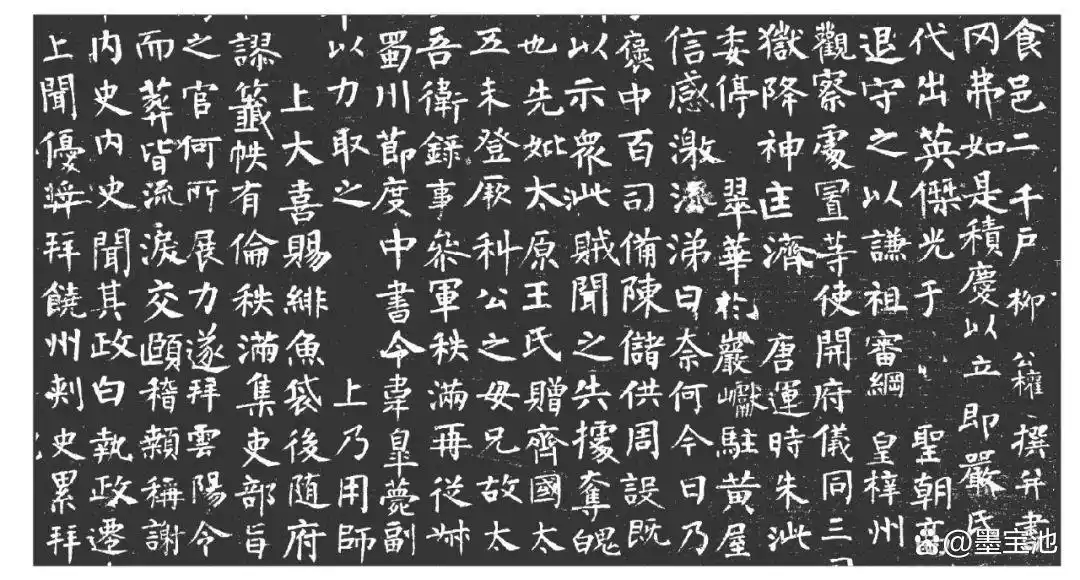 食邑二千戶 柳 公權 撰并書
冈弗如是積慶以立即嚴氏
代出英傑光于 聖朝高
退守之以謙祖審綱 皇梓州
觀察處置等使開府儀同三
嶽降神匡濟 唐運時朱泚
委停 翠華於巖巘駐黃屋
信感激灑涕曰奈何今日乃
褒中百司備陳儲供周設既
以示眾泚賊聞之失據奪魄
也先妣太原王氏贈齊國太
五未登厥科公之母兄故太
吾衛錄事參軍秩滿再從
蜀川節度中書令韋皋薨副
以力取之 上乃用師
上大喜賜緋魚袋後随府
謬籤帙有倫秩滿集吏部旨
之官何所展力遂拜雲陽令
而葬皆流淚交頤稽顙稱謝
內史內史聞其政白執政遷
上聞優獎拜饒州刺史累拜
@墨宝池